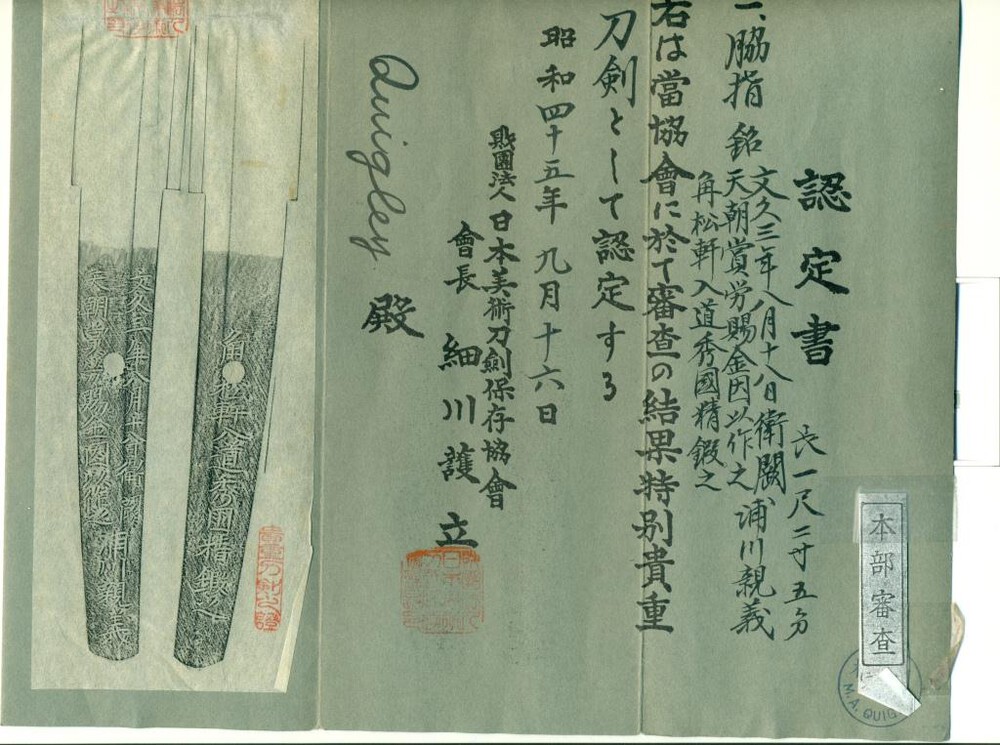 認定書
一、脇指 銘 文久三年八月十八日衛闕 浦川親義 長一尺二寸五分
天朝賞労賜金因以作之
角松軒入道秀國精鍛之
右は當協會に於て審査の結果特別貴重
刀剣として認定する
昭和四十五年九月十六日
財團法人日本美術刀劍保存協會
會長 細川護立
Quigley 殿
本部審査
M.A. QUIG